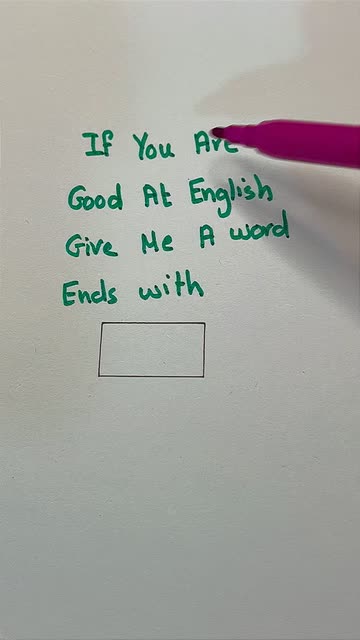 If You Are
Good At English
Give Me A word
Ends with